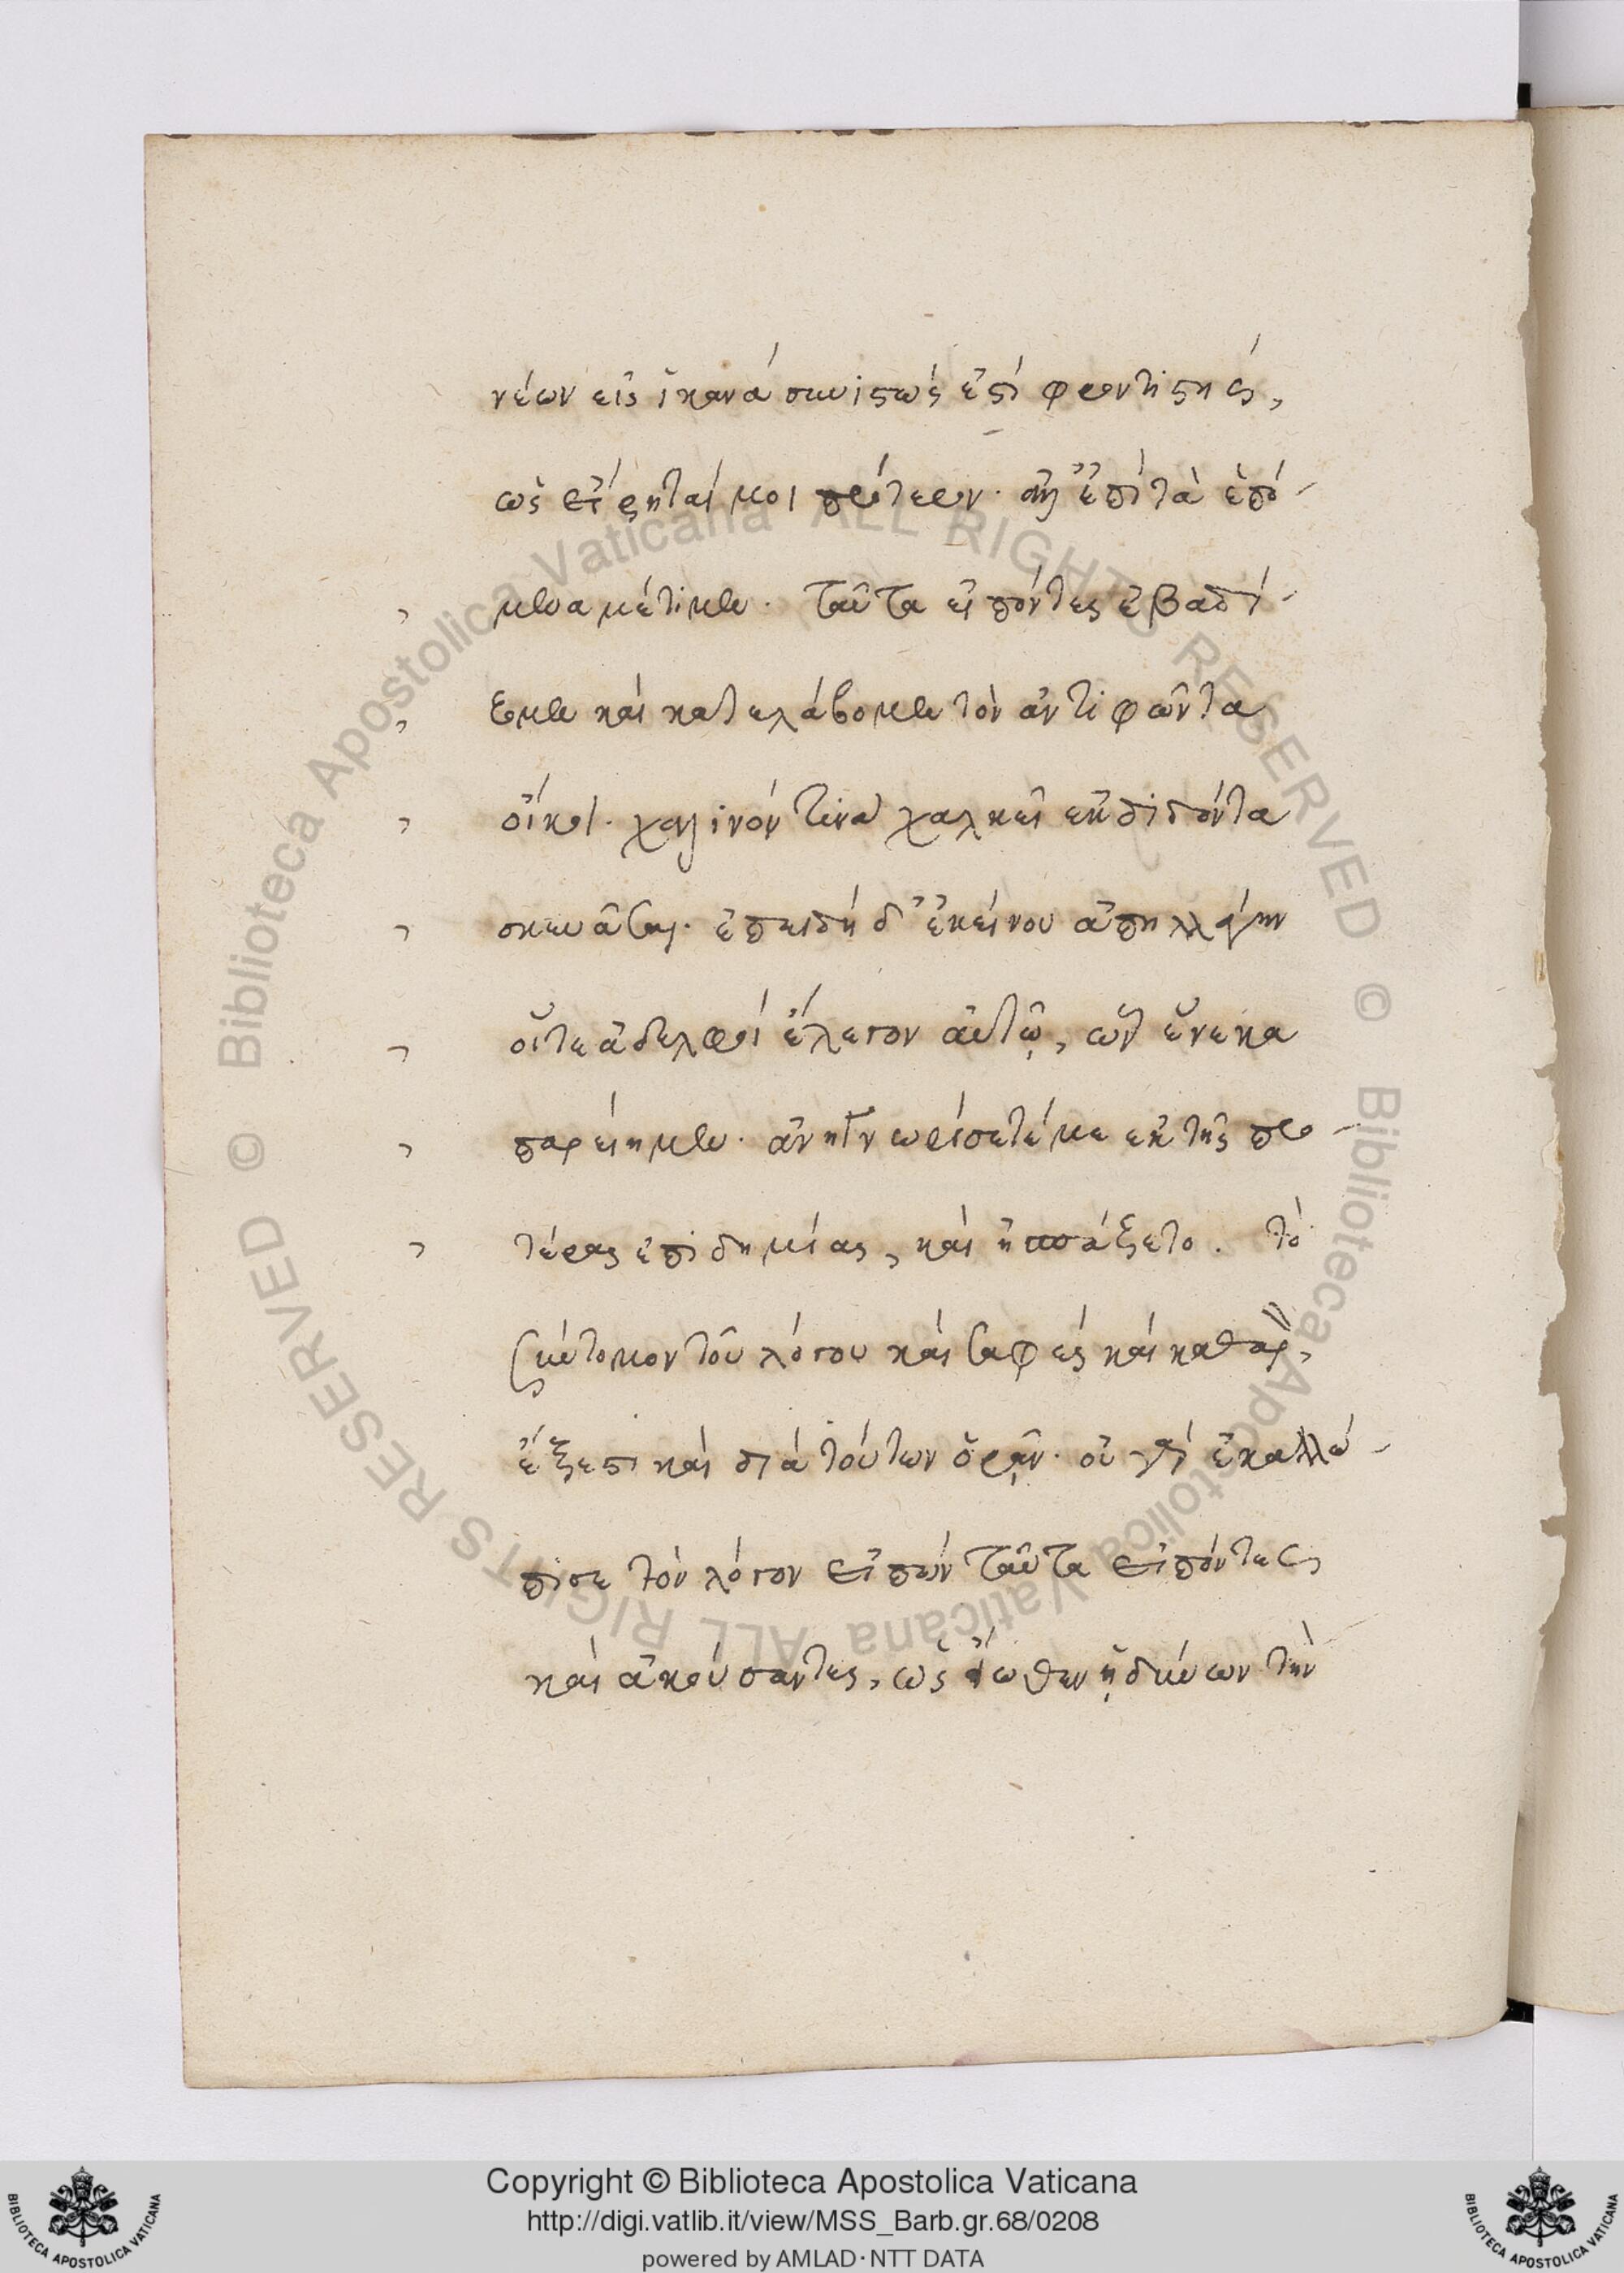 νέων εἰς ἱκανὰ συνιστῶς ἐστὶ φροντιστής,
ὡς εἴρηταί μοι πρότερον. ἀλλ' ἐπὶ τὰ ἑπό-
μενα μέτιμεν. Ταῦτα εἰπόντες ἐβαδί-
ζομεν καὶ κατελάβομεν τὸν ἀντιφῶντα
οἴκοι. χαλινόν τινα χαλκεῖ ἐκδιδόντα
σκευάσαι. ἐπειδὴ δ' ἐκείνου ἀπηλλάγην
οἵτε ἀδελφοὶ ἔλεγον αὐτῷ, ὧν ἕνεκα
παρείημεν. ἀνηγνώρισέ τέ με ἐκ τῆς προ-
τέρας ἐπιδημίας, καὶ ἠσπάζετο. τὸ
σύντομον τοῦ λόγου καὶ σαφὲς καὶ καθαρὸν,
ἔξεστι καὶ διὰ τούτων ὁρᾶν. οὐ γὰρ ἐκαλλώ-
πισε τὸν λόγον εἰπὼν ταῦτα εἰπόντες
καὶ ἀκούσαντες, ὡς ἕωθεν ᾐδικύων τὴν
Copyright © Biblioteca Apostolica Vaticana
http://digi.vatlib.it/view/MSS_Barb.gr.68/0208
powered by AMLAD·NTT DATA
BIBLIOTECA APOSTOLICA VATICANA
BIBLIOTECA APOSTOLICA VATICANA
© Biblioteca Apostolica Vaticana ALL RIGHTS RESERVED © Biblioteca Apostolica Vaticana ALL RIGHTS RESERVED